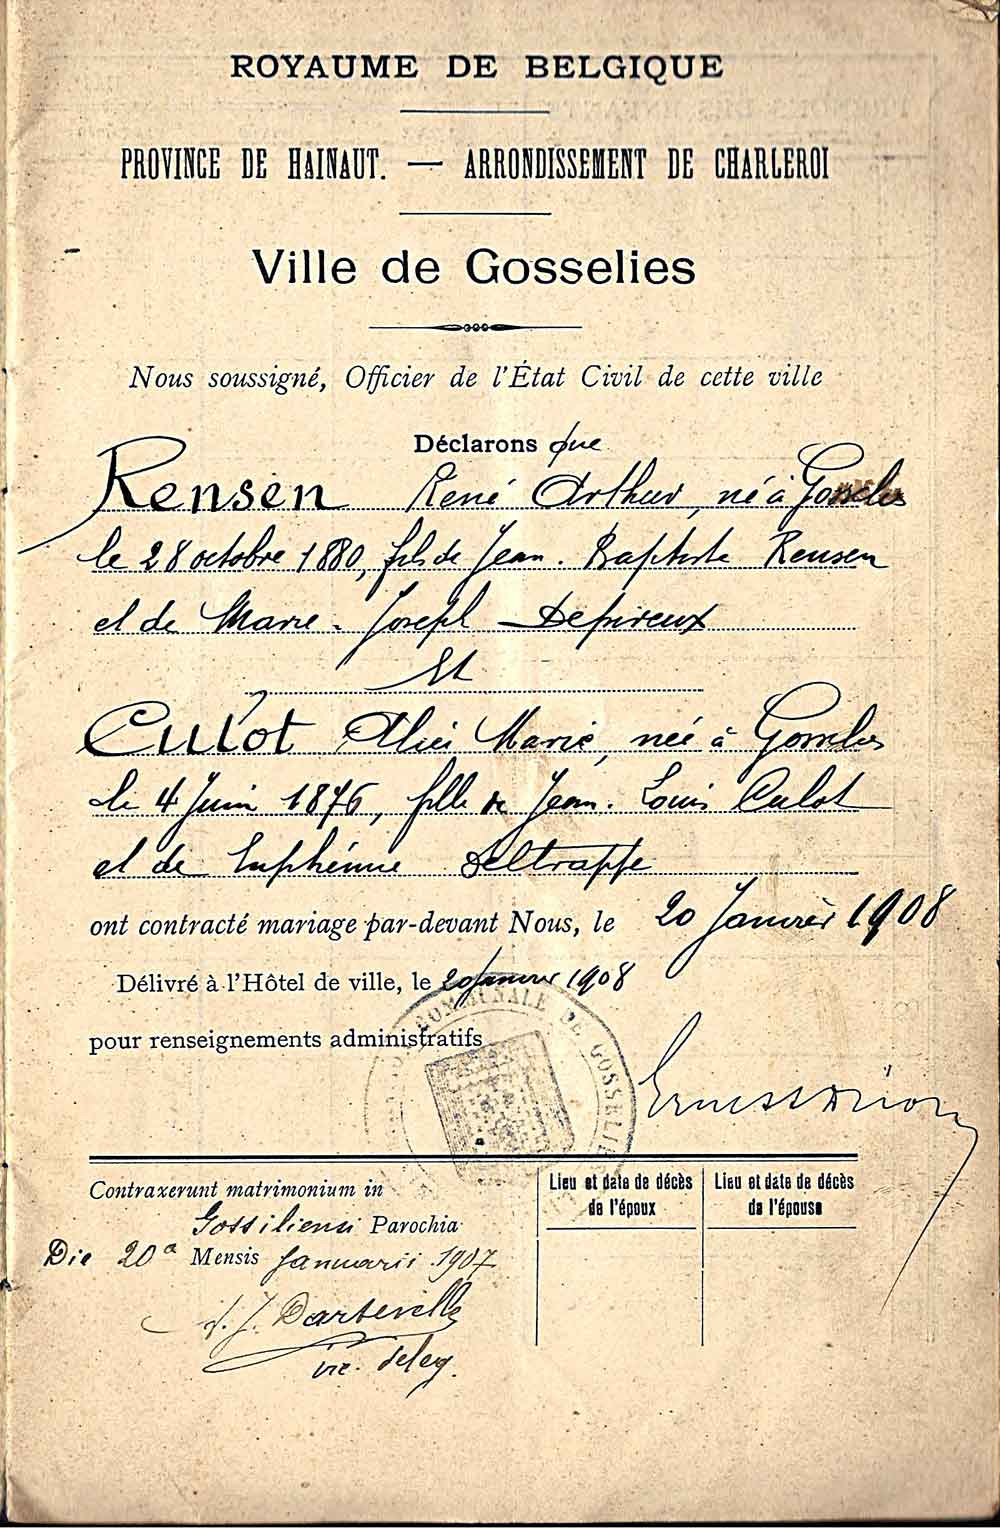 ROYAUME DE BELGIQUE
PROVINCE DE HAINAUT. — ARRONDISSEMENT DE CHARLEROI
Ville de Gosselies
Nous soussigné, Officier de l'État Civil de cette ville
Déclarons que
Rensen René Arthur, né à Gosselies
le 28 octobre 1880, fils de Jean-Baptiste Rensen
et de Marie-Joseph Depireux
Et
Culot Alice Marie, née à Gosselies
le 4 Juin 1876, fille de Jean-Louis Culot
et de Euphémie Deltrappe
ont contracté mariage par-devant Nous, le 20 Janvier 1908
Délivré à l'Hôtel de ville, le 20 janvier 1908
pour renseignements administratifs
COMMUNALE DE GOSSELIES
Contraxerunt matrimonium in
Gossiliensi Parochia
Die 20a Mensis Januarii 1907
J. Dartevelle
vic. deleg.
Lieu et date de décès
de l'époux
Lieu et date de décès
de l'épouse